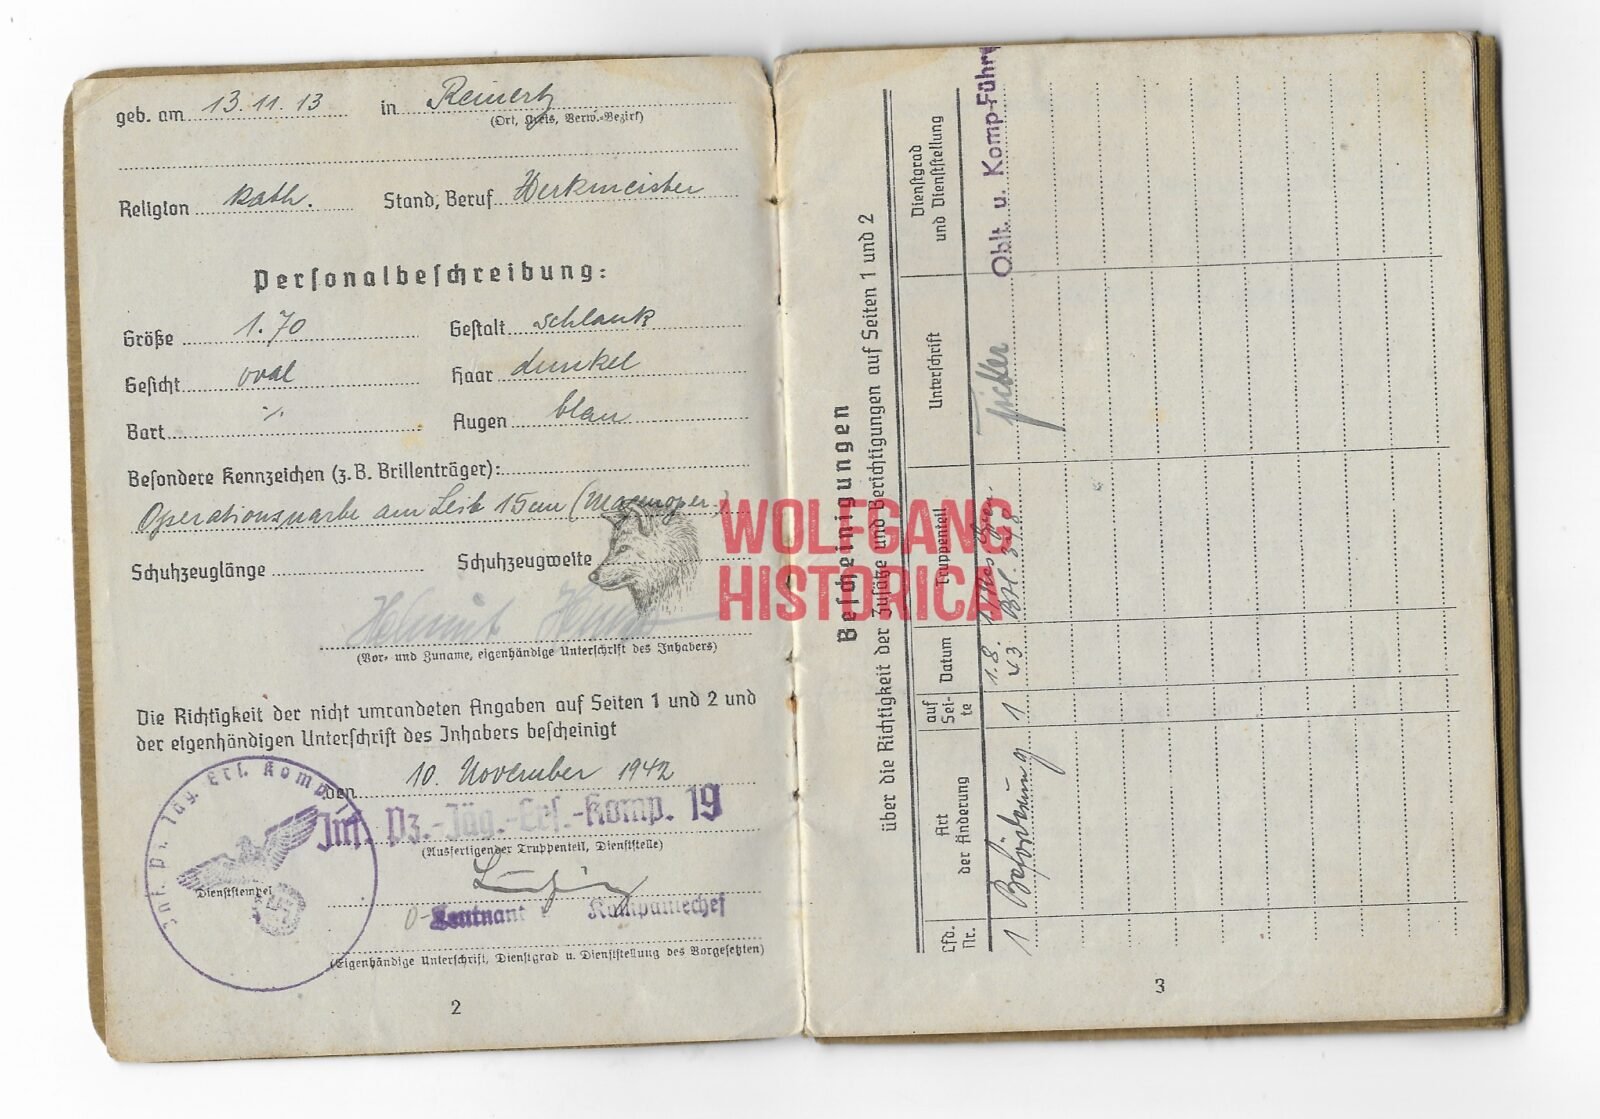 geb. am 13.11.13 in Reinerz
(Ort, Kreis, Verw.-Bezirk)
Religion kath. Stand, Beruf Werkmeister
Personalbeschreibung:
Größe 1.70 Gestalt schlank
Gesicht oval Haar dunkel
Bart ⁒ Augen blau
Besondere Kennzeichen (z. B. Brillenträger):
Operationsnarbe am Leib 15cm (Magenoper.)
Schuhzeuglänge Schuhzeugweite
Helmut
(Vor- und Zuname, eigenhändige Unterschrift des Inhabers)
Die Richtigkeit der nicht umrandeten Angaben auf Seiten 1 und 2 und
der eigenhändigen Unterschrift des Inhabers bescheinigt
den 10. November 1942
Inf. Pz.-Jäg.-Ers.-Komp. 19
(Ausfertigender Truppenteil, Dienststelle)
Inf. Pz. Jäg. Ers. Komp.
Dienststempel
O-Leutnant u. Kompaniechef
(Eigenhändige Unterschrift, Dienstgrad u. Dienststellung des Vorgesetzten)
2
WOLFGANG
HISTORICA
Bescheinigungen
über die Richtigkeit der Zusätze und Berichtigungen auf Seiten 1 und 2
Lfd. Nr.
Art der Änderung
auf Sei-te
Datum
Truppenteil
Unterschrift
Dienstgrad und Dienststellung
1 Beförderung 1 1.8. 43
Oblt. u. Komp-Führ
3